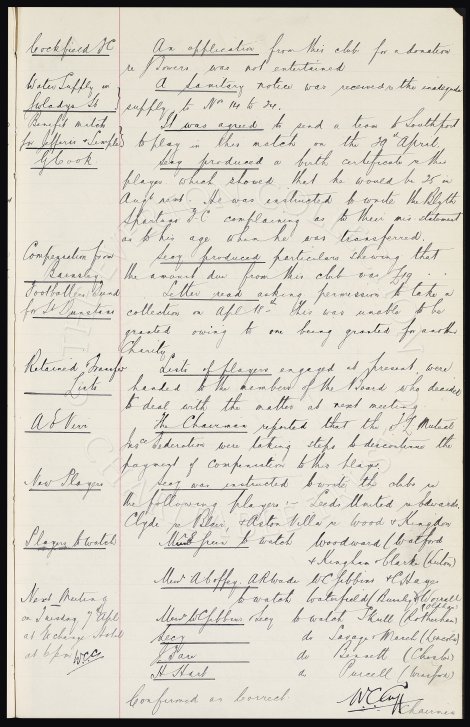 Cockfield FC
An application from this club for a donation
re Bowers was not entertained
Water Supply in
Gwladys St
A sanitary notice was received re the inadequate
supply to Nos 14 to 24.
Benefit match
for Jefferis &
It was agreed to send a team to Southport
to play in this match on the 29th April
G Cook
Secy produced a birth certificate re this
player which showed that he would be 25 in
Augt next. He was instructed to write the Blyth
Spartans FC complaining as to their mis statement
as to his age when he was transferred.
Compensation from
Barnsley
Secy produced particulars shewing that
the amount due from this club was £19
Footballers Fund
for St Dunstans
Letter read asking permission to take a
collection on Apl 18th This was unable to be
granted owing to one being granted for another
Charity
Retained Transfer
Lists
Lists of players engaged at present were
handed to the members of the Board who decided
to deal with the matter at next meeting
A E
The Chairman reported that the Mutual
Insce Federation were taking steps to discontinue the
payment of Compensation to this player
New Players
Secy was instructed to write the clubs re
the following players :- Leeds United re Edwards,
Clyde re Blair, & Aston Villa re Wood & Kingdon
Players to watch
Green to watch Woodward (Watford
& Kingham & Clarke (Luton)
Messrs A Coffey, A R Wade W C Gibbins & C Hayes
to watch Waterfield (Burnley & Worrall
Messrs W C Gibbins & Secy to watch Skull (Rotherham)
Next Meeting
on Tuesday 7th Apl
at Exchange Hotel
at 6 pm WCC
Secy do Savage & March (Lincoln)
do Bennett (Chester)
H Hart do Purcell
Confirmed as Correct
W C Cuff
Chairman